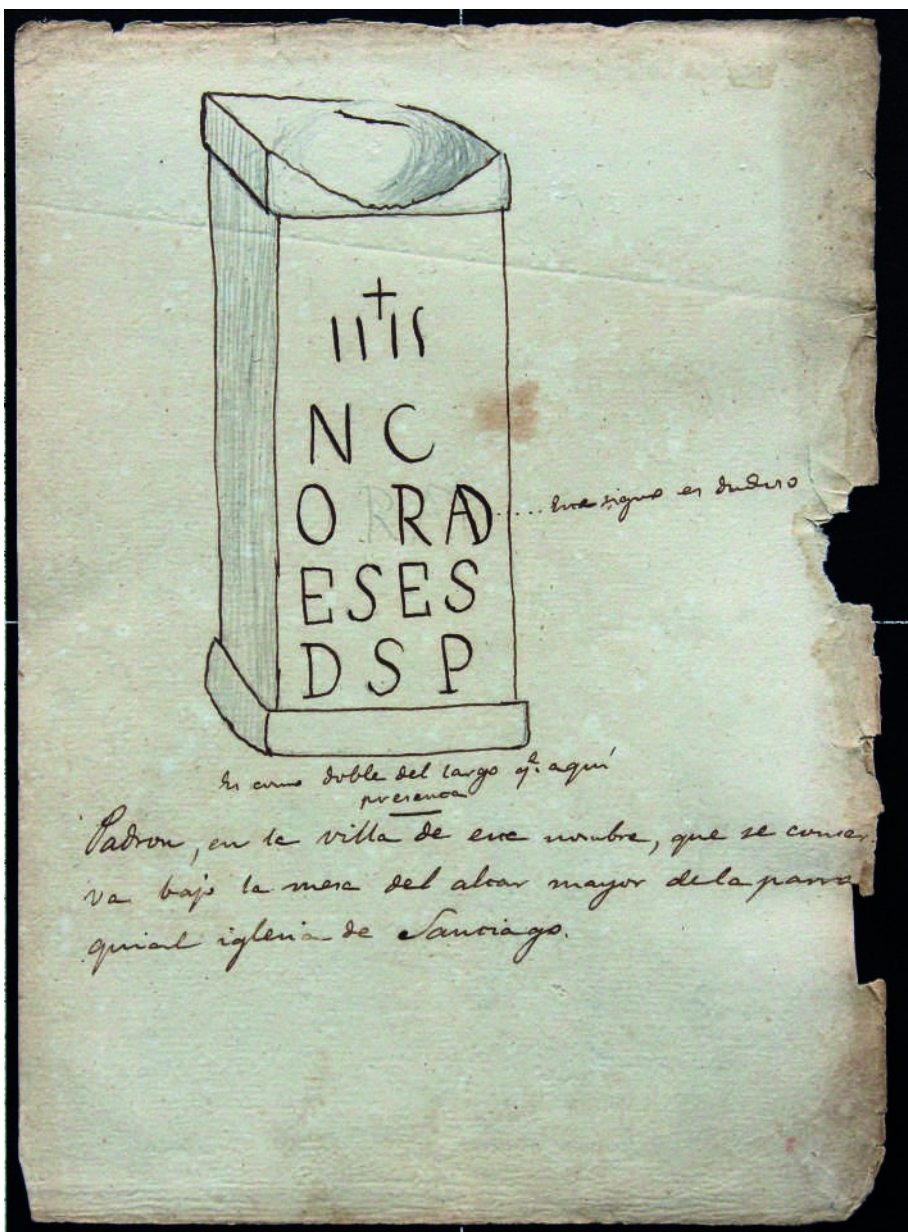 IIIS
N C
O RAD
ESES
DSP
..... Este signo es dudoso
Es como doble del largo qe. aquí
presenta
Padron, en la villa de este nombre, que se conser
va bajo la mesa del altar mayor de la parro
quial iglesia de Santiago.